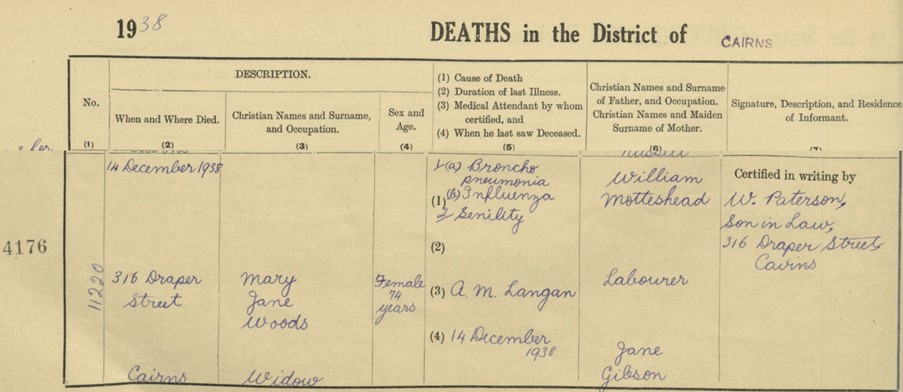 1938
DEATHS in the District of CAIRNS
DESCRIPTION.
No.
When and Where Died.
Christian Names and Surname,
and Occupation.
Sex and
Age.
(1) Cause of Death
(2) Duration of last Illness.
(3) Medical Attendant by whom
certified, and
(4) When he last saw Deceased.
Christian Names and Surname
of Father, and Occupation.
Christian Names and Maiden
Surname of Mother.
Signature, Description, and Residence
of Informant.
(1) (2) (3) (4) (5) (6) (7)
4176
11220
14 December 1938
316 Draper
Street
Cairns
Mary
Jane
Woods
Widow
Female
74
years
1 (a) Broncho
pneumonia
(1) (b) Influenza
2 Senility
(2)
(3) A. M. Langan
(4) 14 December
1938
William
Motteshead
Labourer
Jane
Gibson
Certified in writing by
W. Paterson,
Son in Law,
316 Draper Street
Cairns